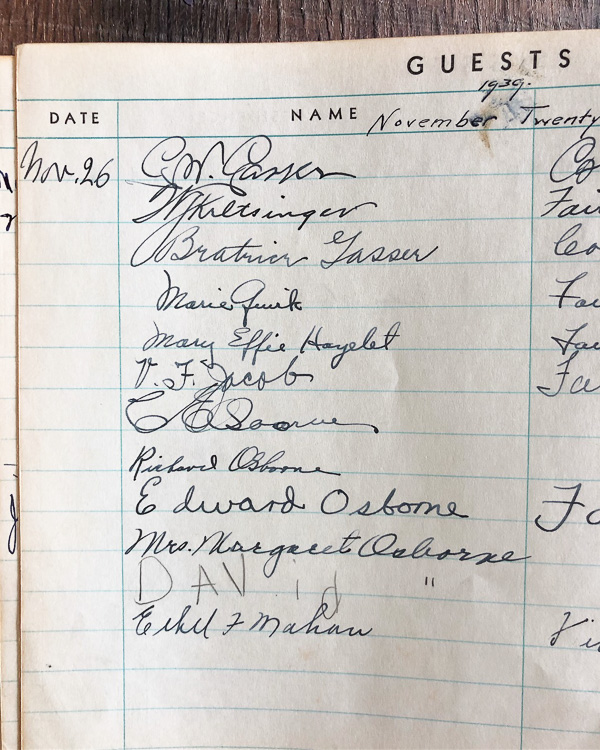 GUESTS
1939.
DATE NAME November Twenty
Nov. 26 G. W. Gasser Co
W Kiltsinger Fair
Beatrice Gasser Co
Marie Quirk Fai
Mary Effie Hazelet Fai
V. F. Jacob Fa
C E Osborne
Richard Osborne
Edward Osborne Fa
Mrs. Margaret Osborne
DAVid "
Ethel F Mahan Vi